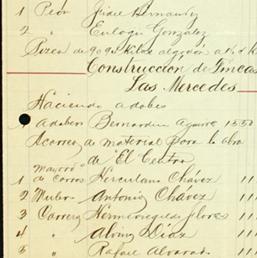 1 Peón Jesús Hernández
2 " Eulogio González
Pizca de 90 90 Kilos algodón a
Construcción de Fincas
Las Mercedes
Haciendo adobes
1 Adobero Bernardino Aguirre 15 50
Acarreo de material para la obra
de "El Centro"
Mayord
1 de Carros Herculano Chávez 11
2 Mulero Antonio Chávez 11
3 Carrero Hermenegildo Flores 11
4 " Albino Díaz 11
5 " Rafael Alvarado 11